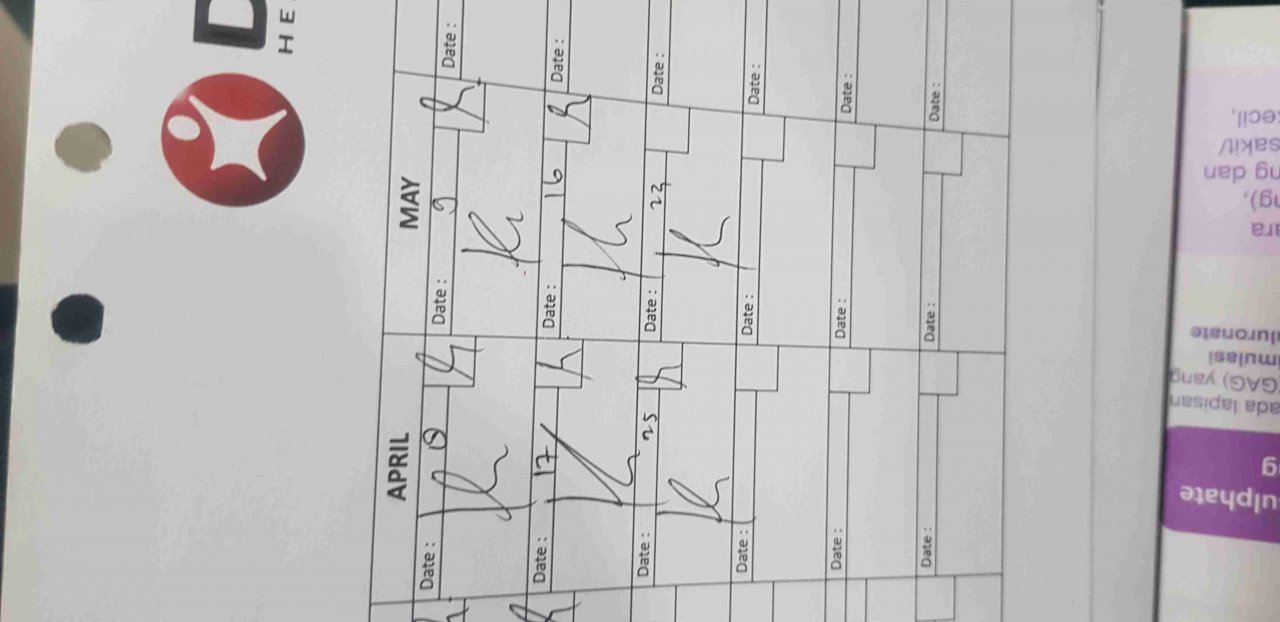 D
HE
APRIL MAY
Date : 8 Date : 9 Date :
Date : 17 Date : 16 Date :
Date : 25 Date : 23 Date :
Date : Date : Date :
Date : Date : Date :
Date : Date : Date :
ulphate
g
ada lapisan
(GAG) yang
mulasi
luronate
ara
ng),
ng dan
sakit/
kecil,